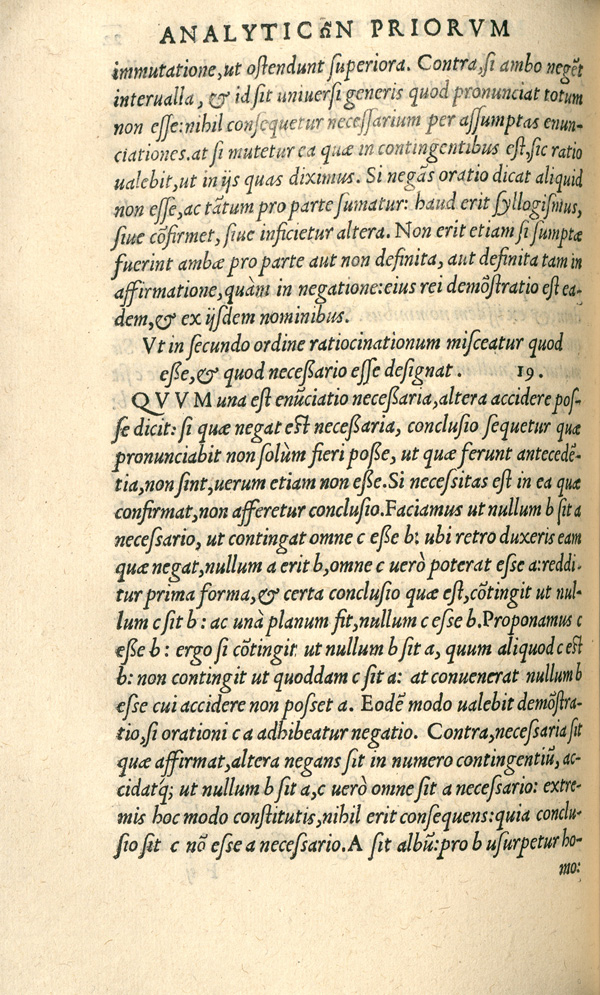 ANALYTICῶN PRIORVM
immutatione,ut oſtendunt ſuperiora. Contra,ſi ambo negẽt
interualla, & id ſit uniuerſi generis quod pronunciat totum
non eſſe:nihil conſequetur neceſſarium per aſſumptas enun-
ciationes.at ſi mutetur ea quæ in contingentibus eſt,ſic ratio
ualebit,ut in ijs quas diximus. Si negãs oratio dicat aliquid
non eſſe,ac tãtum pro parte ſumatur: haud erit ſyllogiſmus,
ſiue cõfirmet, ſiue inficietur altera. Non erit etiam ſi ſumptæ
fuerint ambæ pro parte aut non definita, aut definita tam in
affirmatione,quàm in negatione:eius rei demõſtratio eſt ea-
dem,& ex ijſdem nominibus.
Vt in ſecundo ordine ratiocinationum miſceatur quod
eſße,& quod neceſßario eſſe deſignat. 19.
QVVM una eſt enũciatio neceſßaria,altera accidere poſ-
ſe dicit: ſi quæ negat eſt neceſßaria, concluſio ſequetur quæ
pronunciabit non ſolùm fieri poſße, ut quæ ferunt antecedẽ-
tia,non ſint,uerum etiam non eſße.Si neceſsitas eſt in ea quæ
confirmat,non afferetur concluſio.Faciamus ut nullum b ſit a
neceſsario, ut contingat omne c eſße b: ubi retro duxeris eam
quæ negat,nullum a erit b,omne c uerò poterat eſse a:reddi-
tur prima forma,& certa concluſio quæ eſt,cõtingit ut nul-
lum c ſit b: ac unà planum fit,nullum c eſse b.Proponamus c
eſße b: ergo ſi cõtingit ut nullum b ſit a, quum aliquod c eſt
b: non contingit ut quoddam c ſit a: at conuenerat nullum b
eſse cui accidere non poſset a. Eodẽ modo ualebit demõſtra-
tio,ſi orationi c a adhibeatur negatio. Contra,neceſsaria ſit
quæ affirmat,altera negans ſit in numero contingentiũ, ac-
cidatq́; ut nullum b ſit a,c uerò omne ſit a neceſsario: extre-
mis hoc modo conſtitutis,nihil erit conſequens:quia conclu-
ſio ſit c nõ eſse a neceſsario.A ſit albũ:pro b uſurpetur ho-
mo: